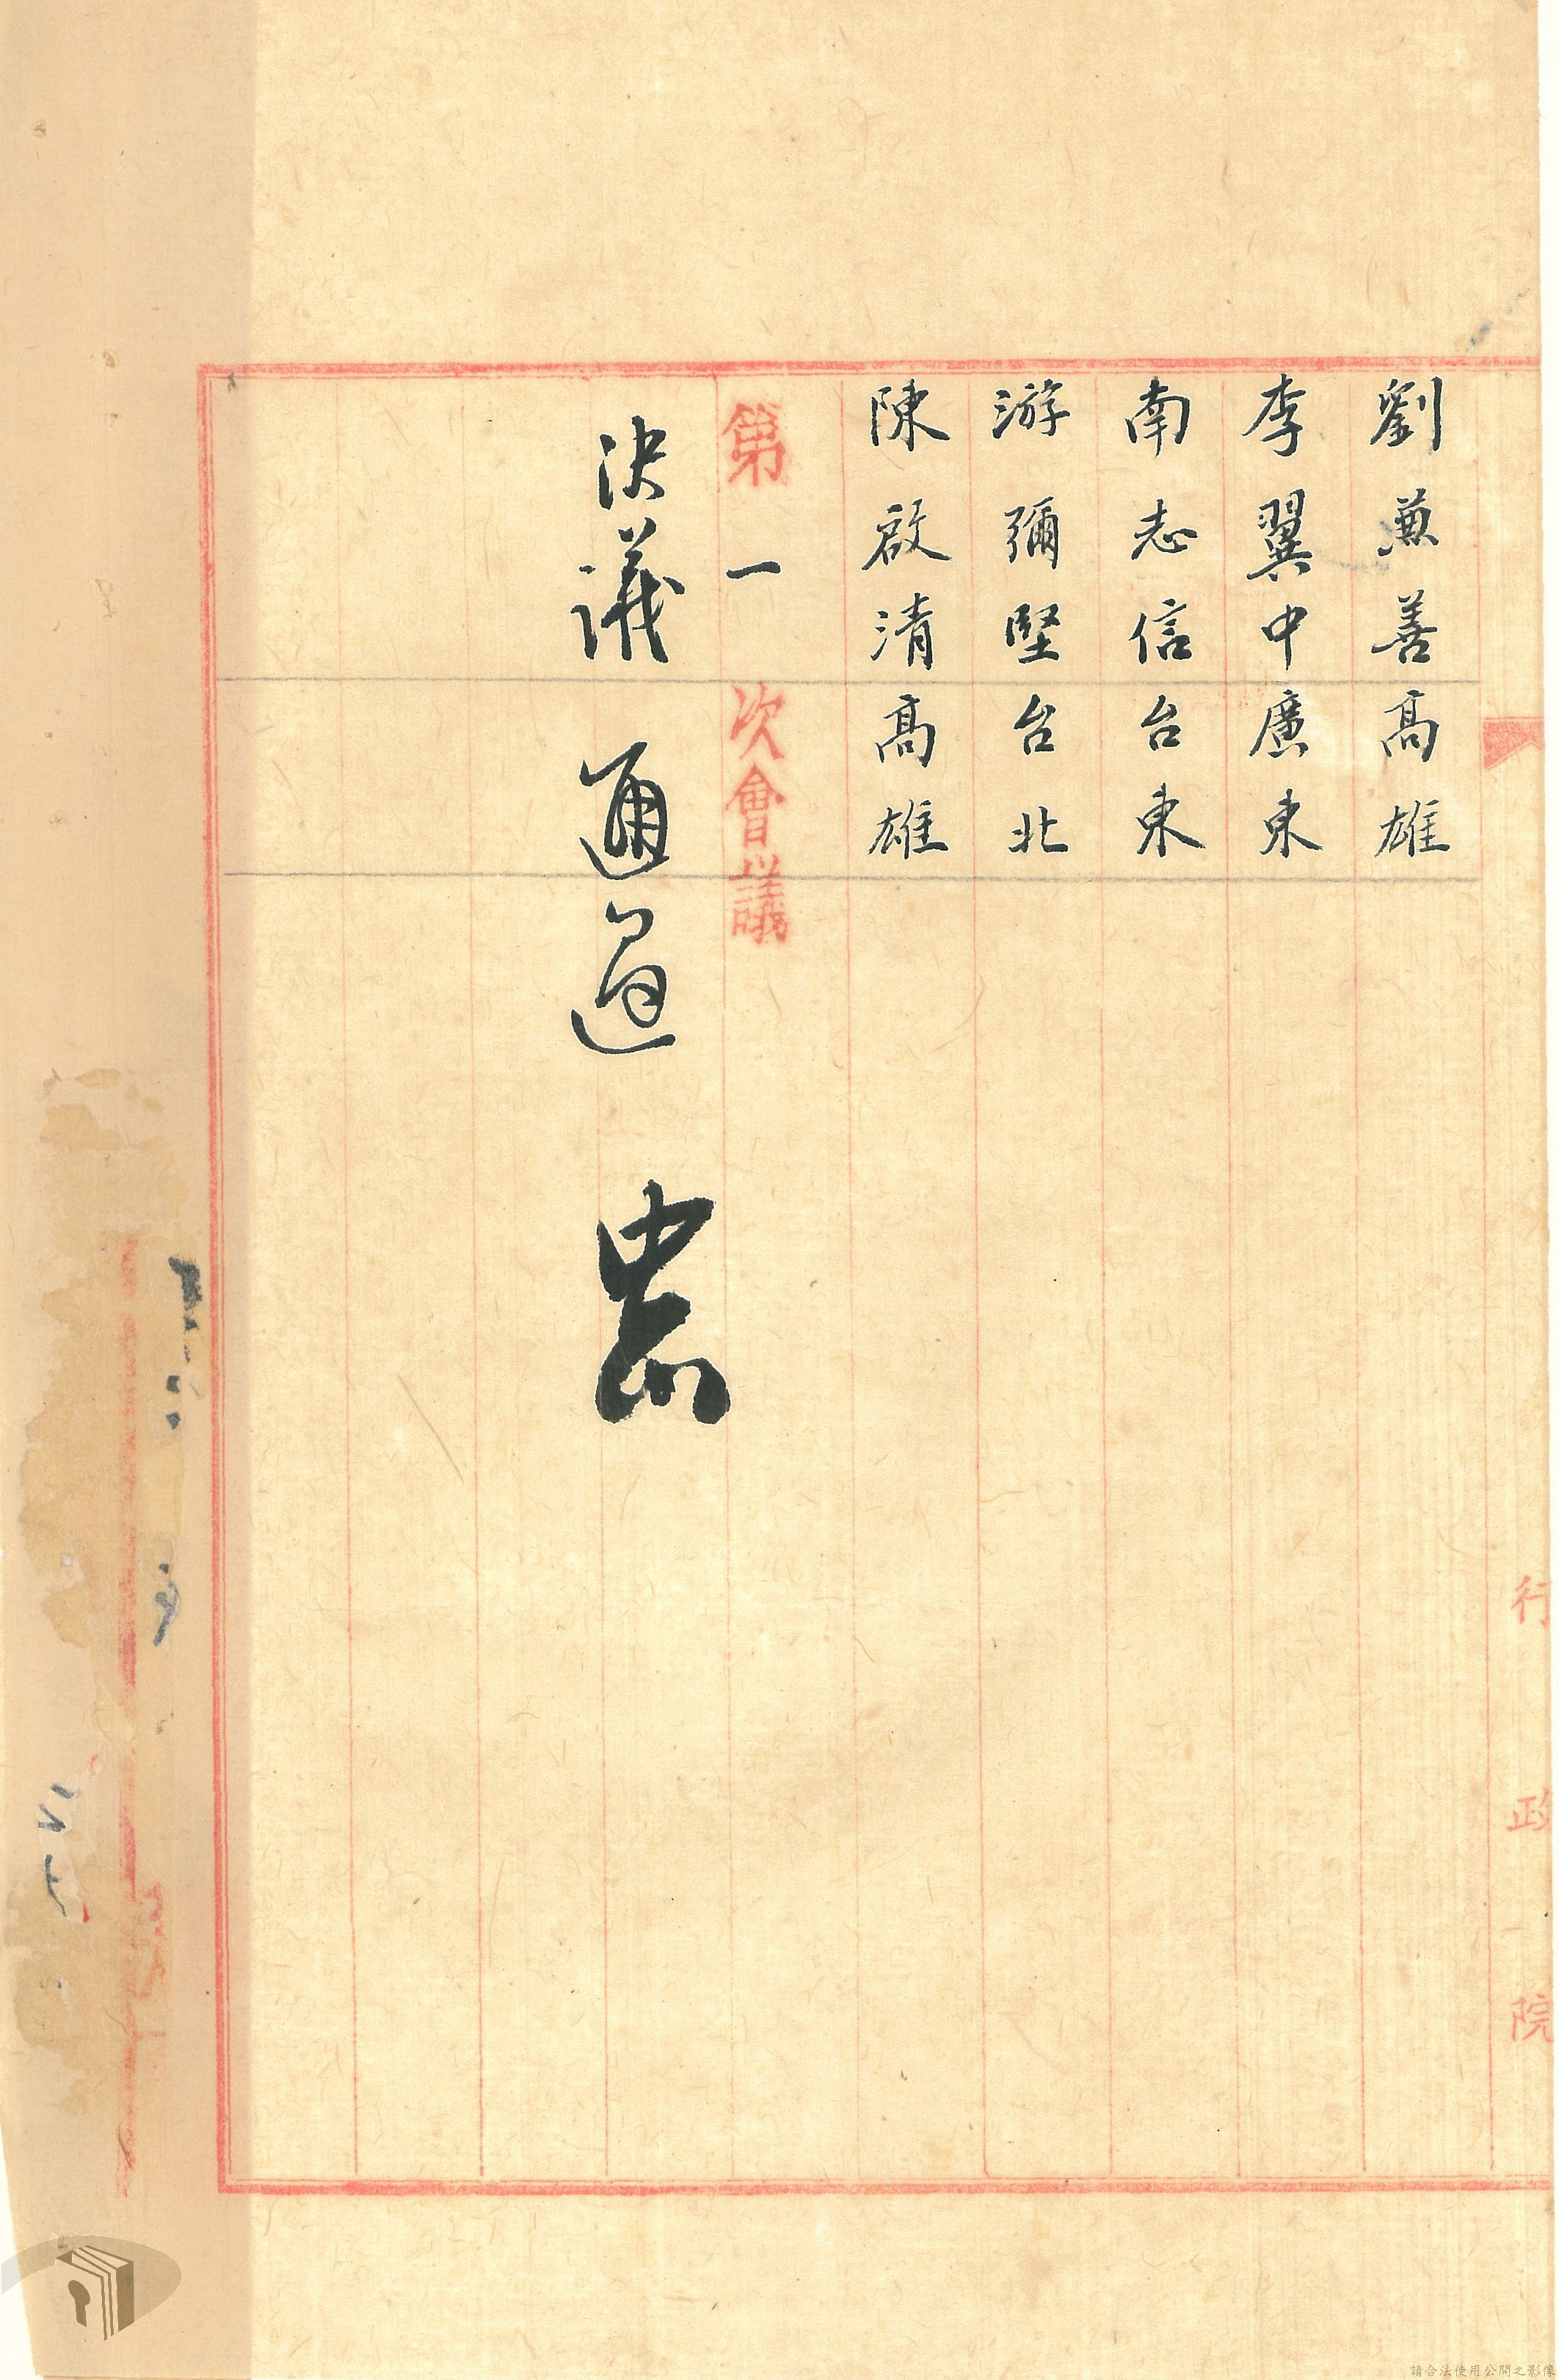 劉兼善高雄
李翼中廣東
南志信台東
游彌堅台北
陳啟清高雄
第一次會議
決議 通過
行政院
請合法使用公開之影像